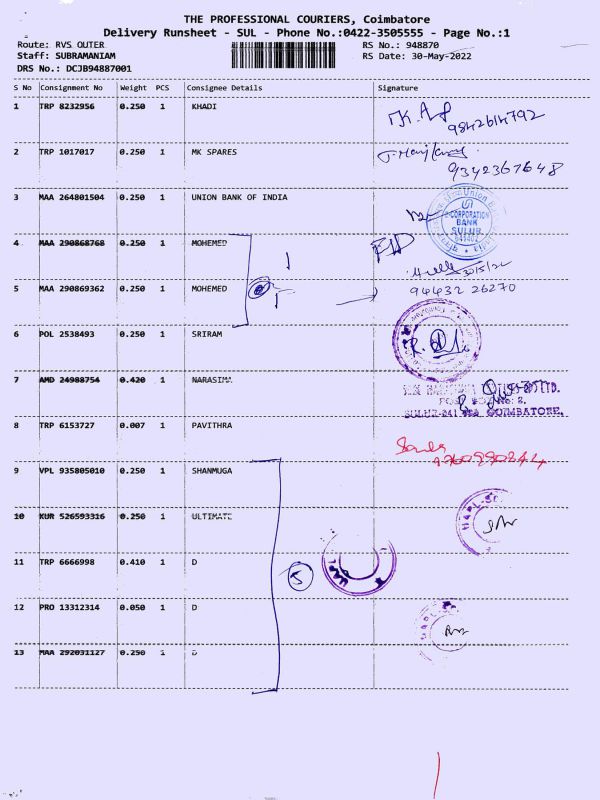 THE PROFESSIONAL COURIERS, Coimbatore
Delivery Runsheet - SUL - Phone No.:0422-3505555 - Page No.:1
Route: RVS OUTER RS No.: 948870
Staff: SUBRAMANIAM RS Date: 30-May-2022
DRS No.: DCJB94887001
S No Consignment No Weight PCS Consignee Details Signature
1 TRP 8232956 0.250 1 KHADI
9842614792
2 TRP 1017017 0.250 1 MK SPARES
9342367648
3 MAA 264801504 0.250 1 UNION BANK OF INDIA
Union Bank
CORPORATION
BANK
SULUR
641402
4 MAA 290868768 0.250 1 MOHEMED
30/5/22
5 MAA 290869362 0.250 1 MOHEMED 94432 26270
6 POL 2538493 0.250 1 SRIRAM
7 AMD 24988754 0.420 1 NARASIMA
COIMBATORE.
8 TRP 6153727 0.007 1 PAVITHRA
9 VPL 935805010 0.250 1 SHANMUGA
10 KUR 526593316 0.250 1 ULTIMATE
11 TRP 6666998 0.410 1 D
5
12 PRO 13312314 0.050 1 D
13 MAA 292031127 0.250 1 D